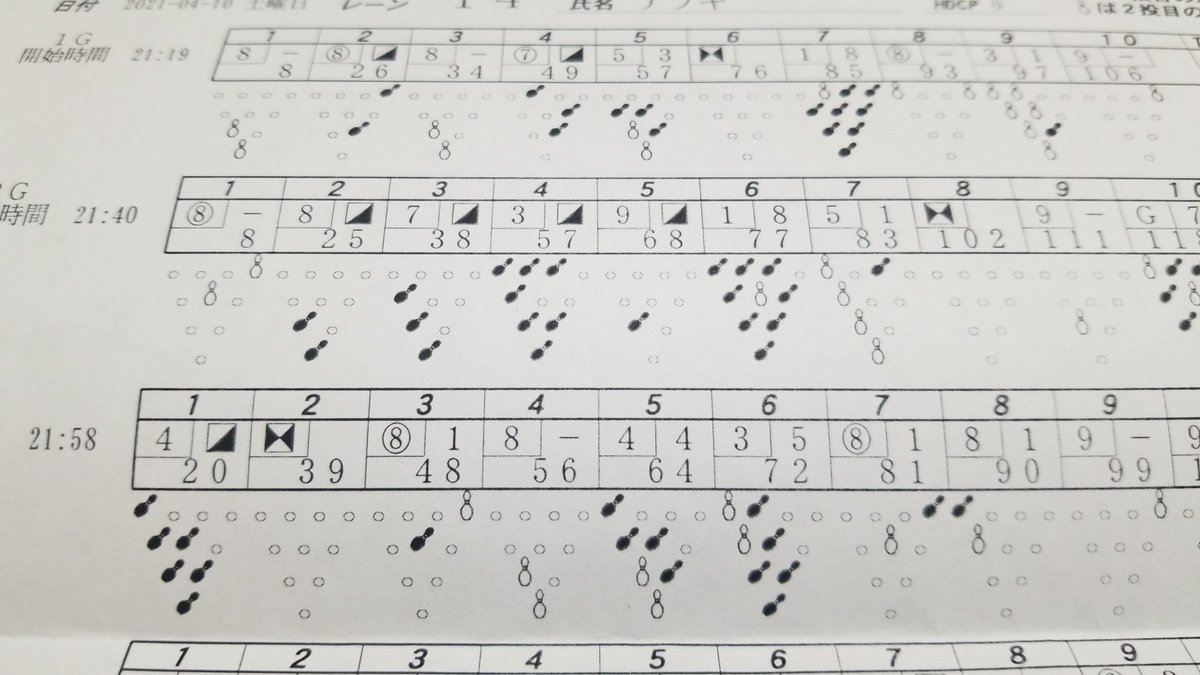 日付 2021-04-10 土曜日 レーン 14 氏名 HDCP 0 は2投目の
1G 1 2 3 4 5 6 7 8 9 10
開始時間 21:19 8 - ⑧ ◢ 8 - ⑦ ◢ 5 3 ⧓ 1 8 ⑧ 3 1 9 -
8 26 34 49 57 76 85 93 97 106
G 1 2 3 4 5 6 7 8 9 10
時間 21:40 ⑧ - 8 ◢ 7 ◢ 3 ◢ 9 ◢ 1 8 5 1 ⧓ 9 - G 7
8 25 38 57 68 77 83 102 111 118
1 2 3 4 5 6 7 8 9
21:58 4 ◢ ⧓ ⑧ 1 8 - 4 4 3 5 ⑧ 1 8 1 9 - 9
20 39 48 56 64 72 81 90 99 1
1 2 3 4 5 6 7 8 9